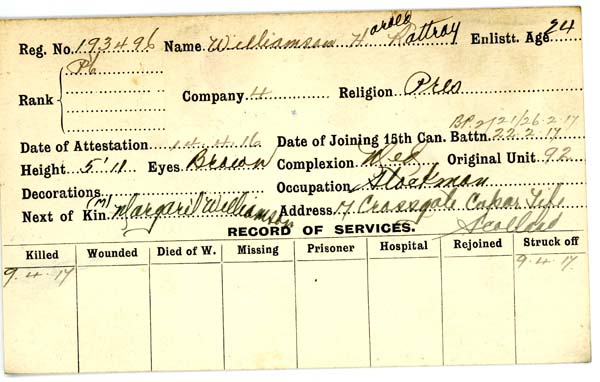 Reg. No. 193496 Name Williamson Harold Rattray Enlistt. Age 24
Rank Pte Company 4 Religion Pres
Date of Attestation 14.4.16 Date of Joining 15th Can. Battn. 22.2.17
Height 5'11 Eyes Brown Complexion Med Original Unit 92
Decorations Occupation Stockman
Next of Kin (M) Margaret Williamson Address 7 Crossgate Cupar Fife
Scotland
RECORD OF SERVICES.
Killed Wounded Died of W. Missing Prisoner Hospital Rejoined Struck off
9.4.17 9.4.17